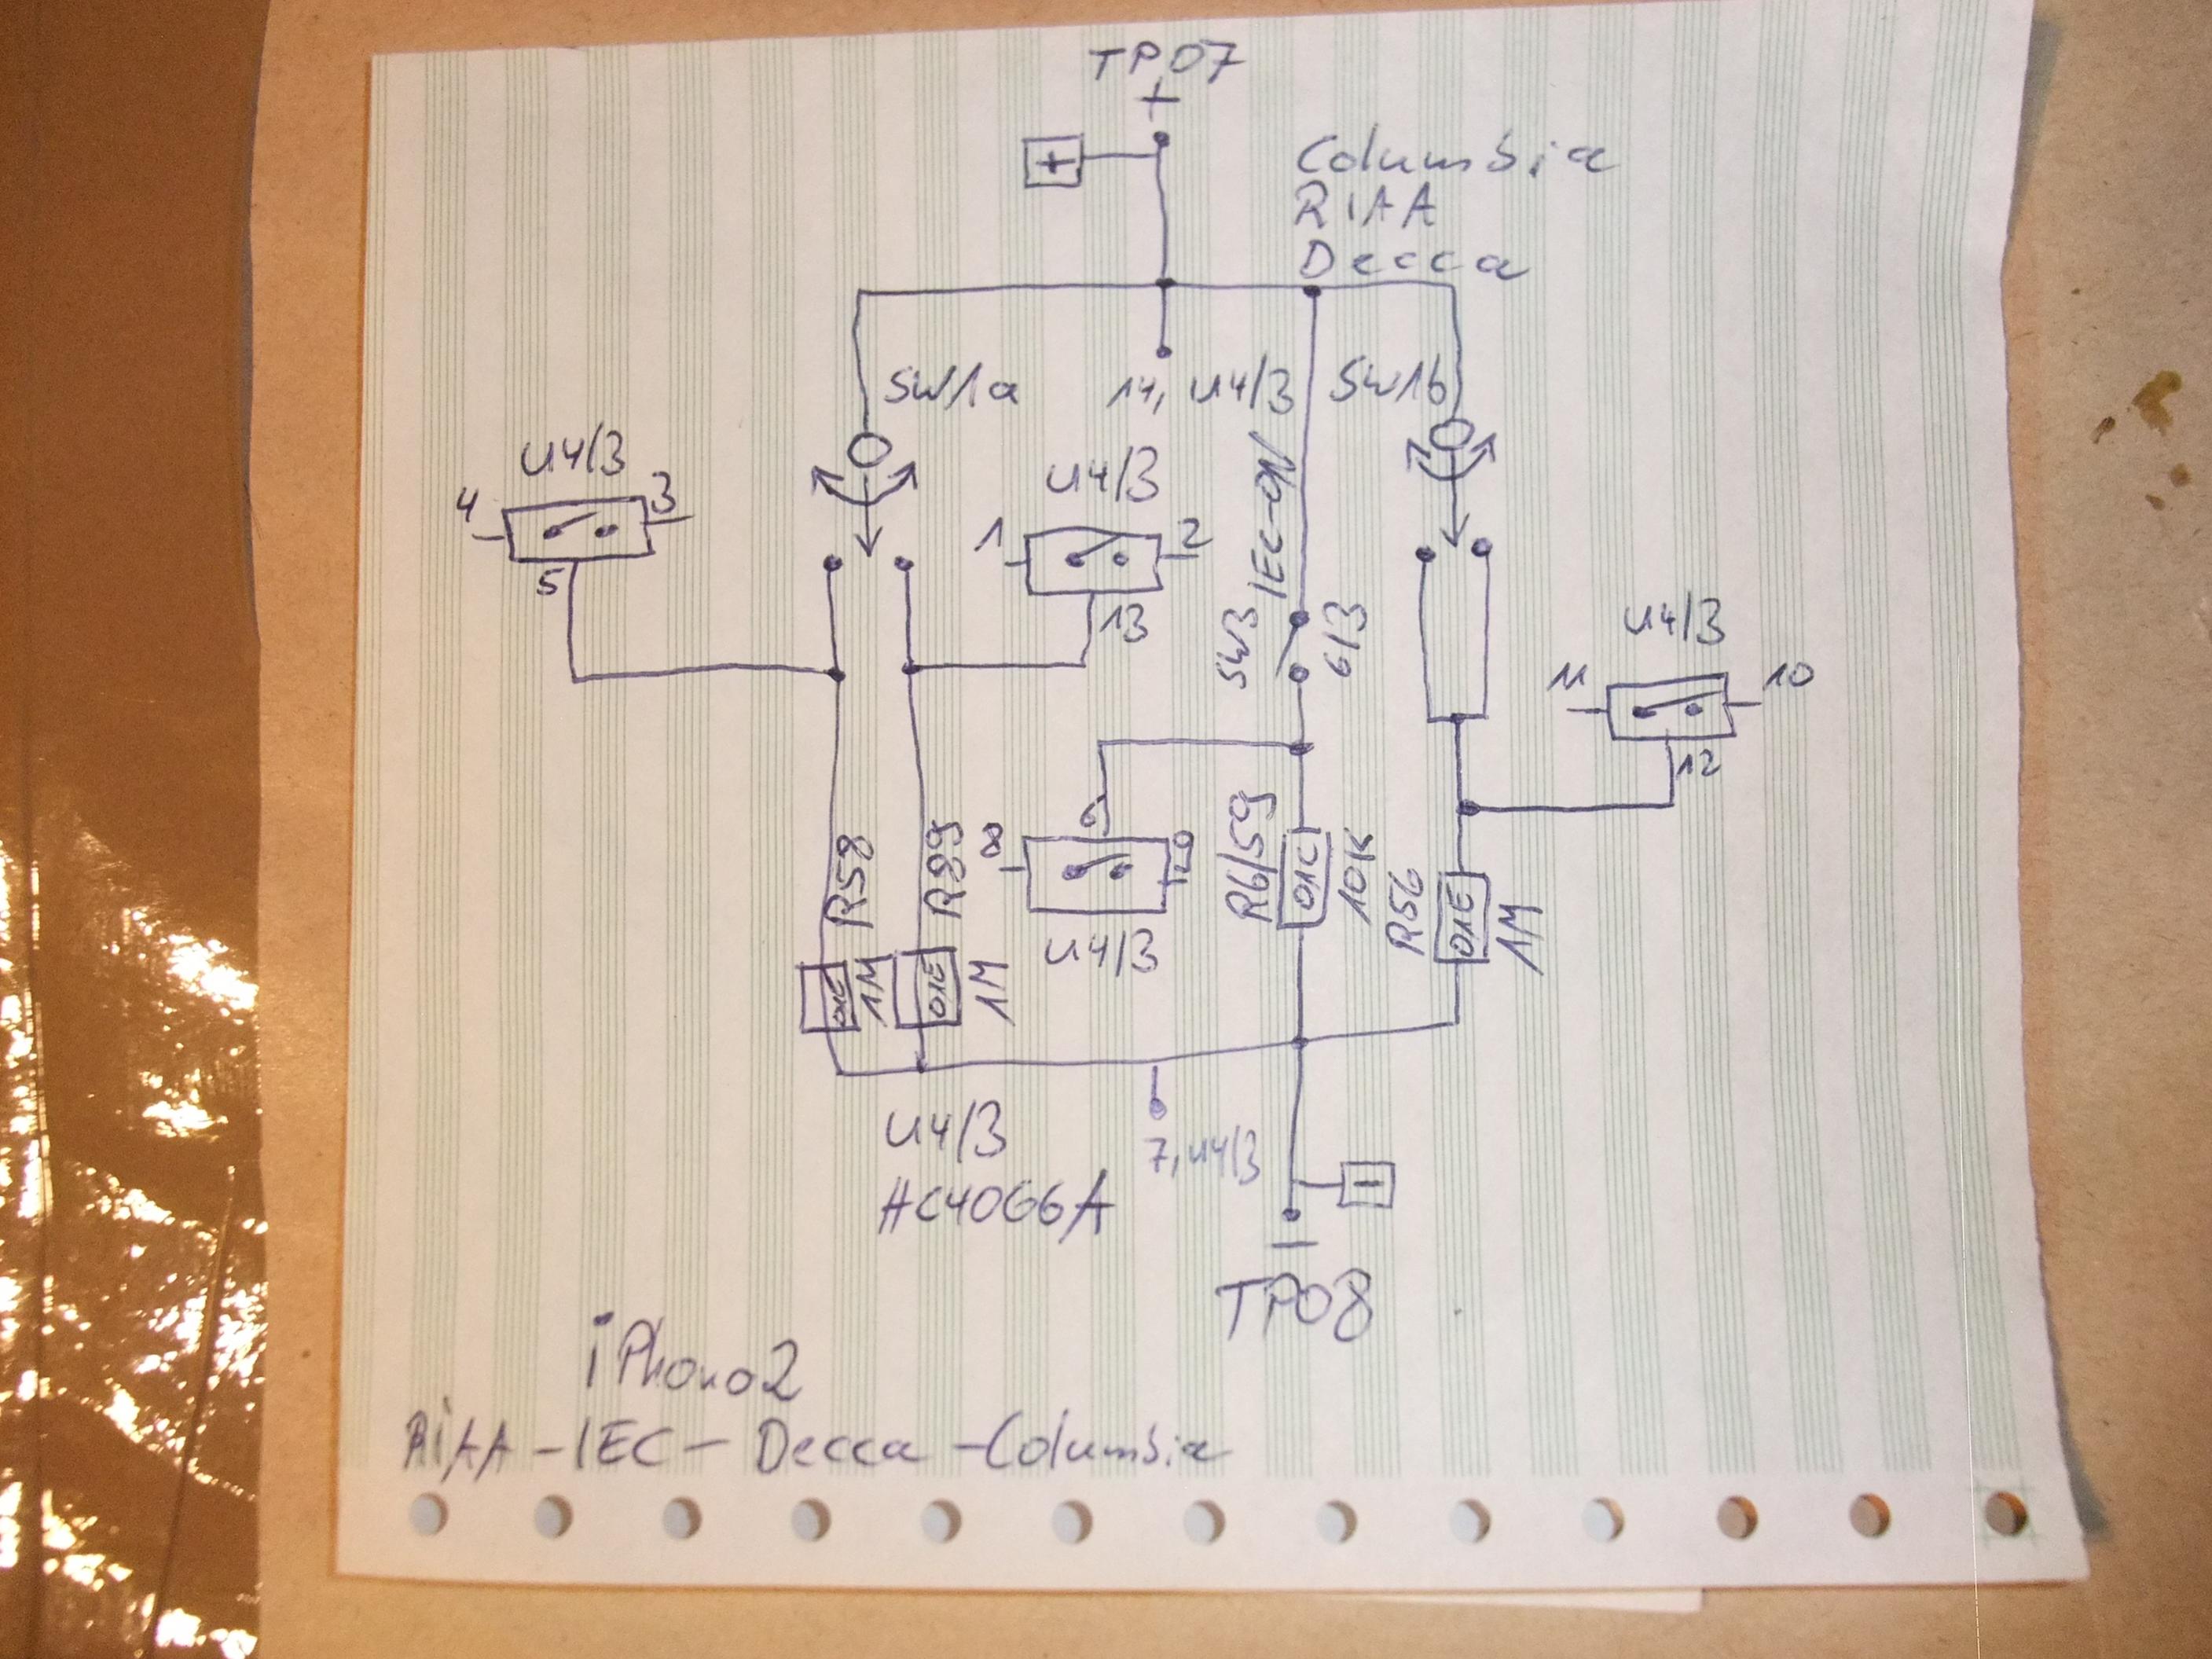 TP07
+
+
Columbia
RIAA
Decca
SW1a
14, U4/3
SW1b
U4/3
4
3
5
U4/3
1
2
13
IEC-ON
SW3
6/3
U4/3
11
10
12
R58
R89
8
9
U4/3
R6/59
01C
10K
R56
01E
1M
01E
1M
01E
1M
U4/3
HC4066A
7, U4/3
–
–
TP08
iPhono2
RiAA – IEC – Decca – Columbia